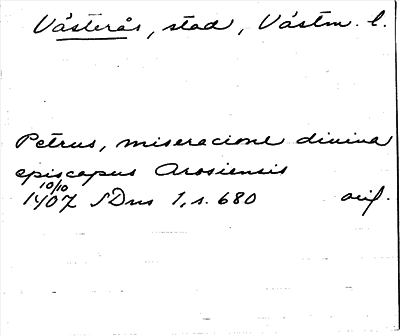 Västerås, stad, Västm. l.
Petrus, miseracione divina
episcopus Arosiensis
10/10
1407 SDns 1, s. 680 orig.